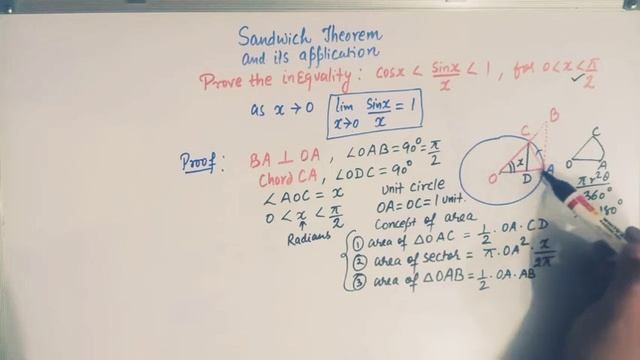 Sandwich Theorem
and its application
Prove the inEquality: cosx < sinx/x < 1, for 0 < x < π/2
as x → 0 lim x→0 sinx/x = 1
Proof: BA ⊥ OA, ∠OAB = 90° = π/2
Chord CA, ∠ODC = 90°
∠AOC = x
0 < x < π/2
Radians
unit circle
OA = OC = 1 unit.
Concept of area
① area of △OAC = 1/2 · OA · CD
② area of sector = π · OA² · x/2π
③ area of △OAB = 1/2 · OA · AB
B
C
x
O
D
A
C
O
A
πr²θ
360°
180°